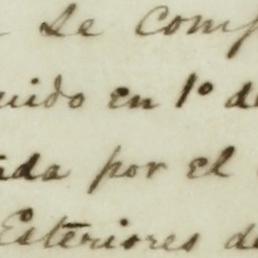 se comp
uido en 1º de
ada por el
Esteriores de